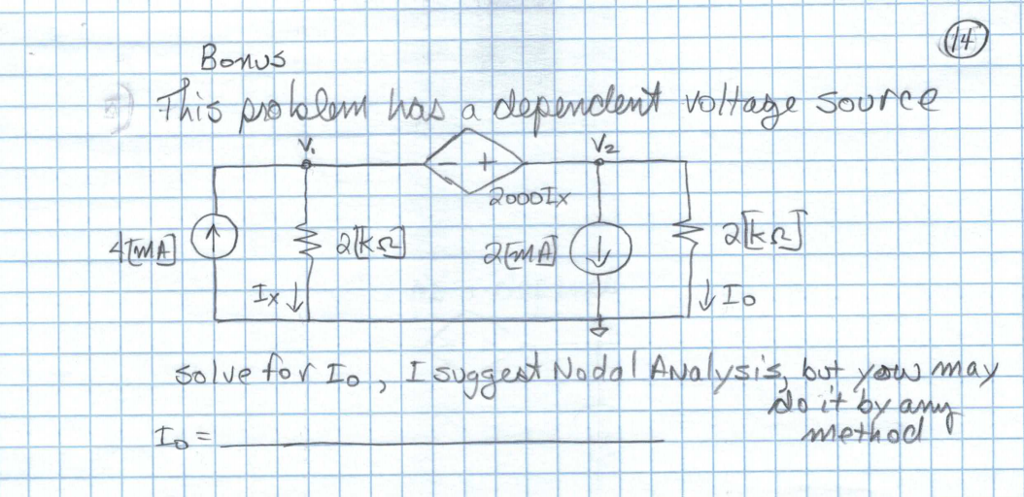 14
Bonus
This problem has a dependent voltage source
V1 - + V2
2000Ix
4[mA] 2[kΩ] 2[mA] 2[kΩ]
Ix Io
solve for Io, I suggest Nodal Analysis, but you may
do it by any
method
Io =